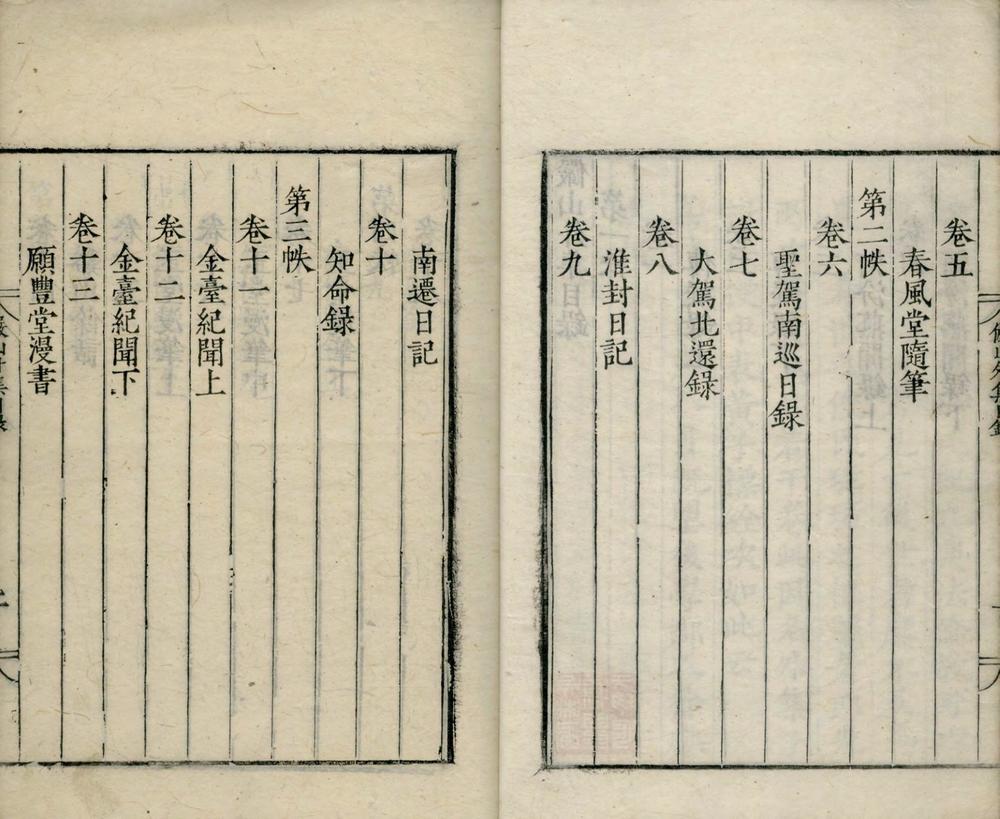 卷五
春風堂隨筆
第二帙
卷六
聖駕南巡日錄
卷七
大駕北還錄
卷八
淮封日記
卷九
南遷日記
卷十
知命錄
第三帙
卷十一
金臺紀聞上
卷十二
金臺紀聞下
卷十三
願豐堂漫書